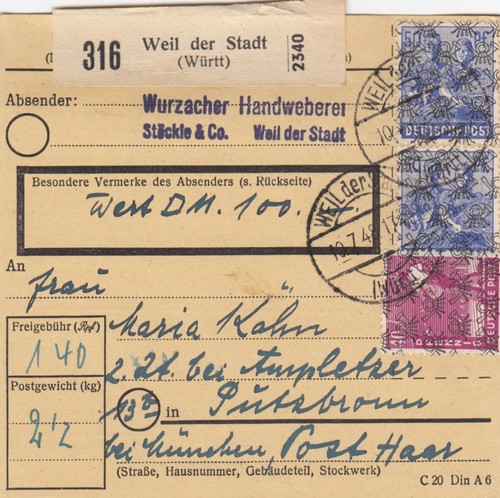 316 Weil der Stadt
(Württ)
2340
Absender:
Wurzacher Handweberei
Stöckle & Co. Weil der Stadt
50
DEUTSCHE POST
Besondere Vermerke des Absenders (s. Rückseite)
Wert DM. 100.-
WEIL der
10.7.48 17
(Württ)
An
Frau
Maria Kahn
z. Zt. bei Ampletzer
(13b) in Putzbrunn
bei München, Post Haar
Freigebühr (Rpf)
1 40
Postgewicht (kg)
2 1/2
DEUTSCHE POST
40
PFENNIG
(Straße, Hausnummer, Gebäudeteil, Stockwerk)
C 20 Din A 6